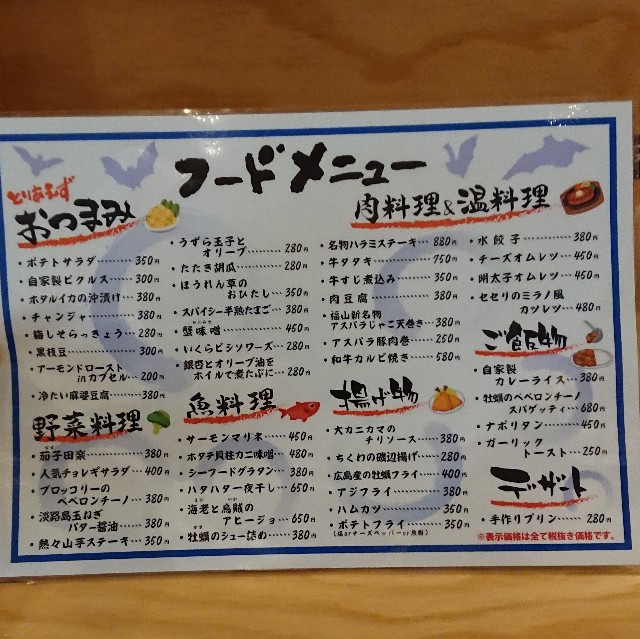 フードメニュー
とりあえず
おつまみ
・ポテトサラダ……350円
・自家製ピクルス……300円
・ホタルイカの沖漬け…380円
・チャンジャ……380円
・梅しそらっきょう…280円
・黒枝豆……300円
・アーモンドロースト
inカプセル…200円
・冷たい麻婆豆腐……380円
・うずら玉子と
オリーブ……280円
・たたき胡瓜……280円
・ほうれん草の
おひたし…350円
・スパイシー半熟たまご…380円
・蟹味噌……450円
・いくらピシソワーズ…280円
・銀杏とオリーブ油を
ホイルで煮たぶに…280円
野菜料理
・茄子田楽……380円
・人気チョレギサラダ…400円
・ブロッコリーの
ペペロンチーノ…380円
・淡路島玉ねぎ
バター醤油…380円
・熱々山芋ステーキ…350円
魚料理
・サーモンマリネ……450円
・ホタテ貝柱カニ味噌…480円
・シーフードグラタン…380円
・ハタハタ一夜干し…650円
・海老と烏賊の
アヒージョ…650円
・牡蠣のシュー詰め…380円
肉料理&温料理
・名物ハラミステーキ…880円
・牛タタキ……750円
・牛すじ煮込み……350円
・肉豆腐……380円
・福山新名物
アスパラじゃこ天巻き…380円
・アスパラ豚肉巻き…250円
・和牛カルビ焼き……580円
・水餃子……380円
・チーズオムレツ…450円
・明太子オムレツ…450円
・セセリのミラノ風
カツレツ…480円
揚げ物
・大カニカマの
チリソース……380円
・ちくわの磯辺揚げ…280円
・広島産の牡蠣フライ…400円
・アジフライ……380円
・ハムカツ……350円
・ポテトフライ……350円
ご飯物
・自家製
カレーライス…380円
・牡蠣のペペロンチーノ
スパゲッティ…680円
・ナポリタン……450円
・ガーリック
トースト…250円
デザート
・手作りプリン……280円
※表示価格は全て税抜き価格です。